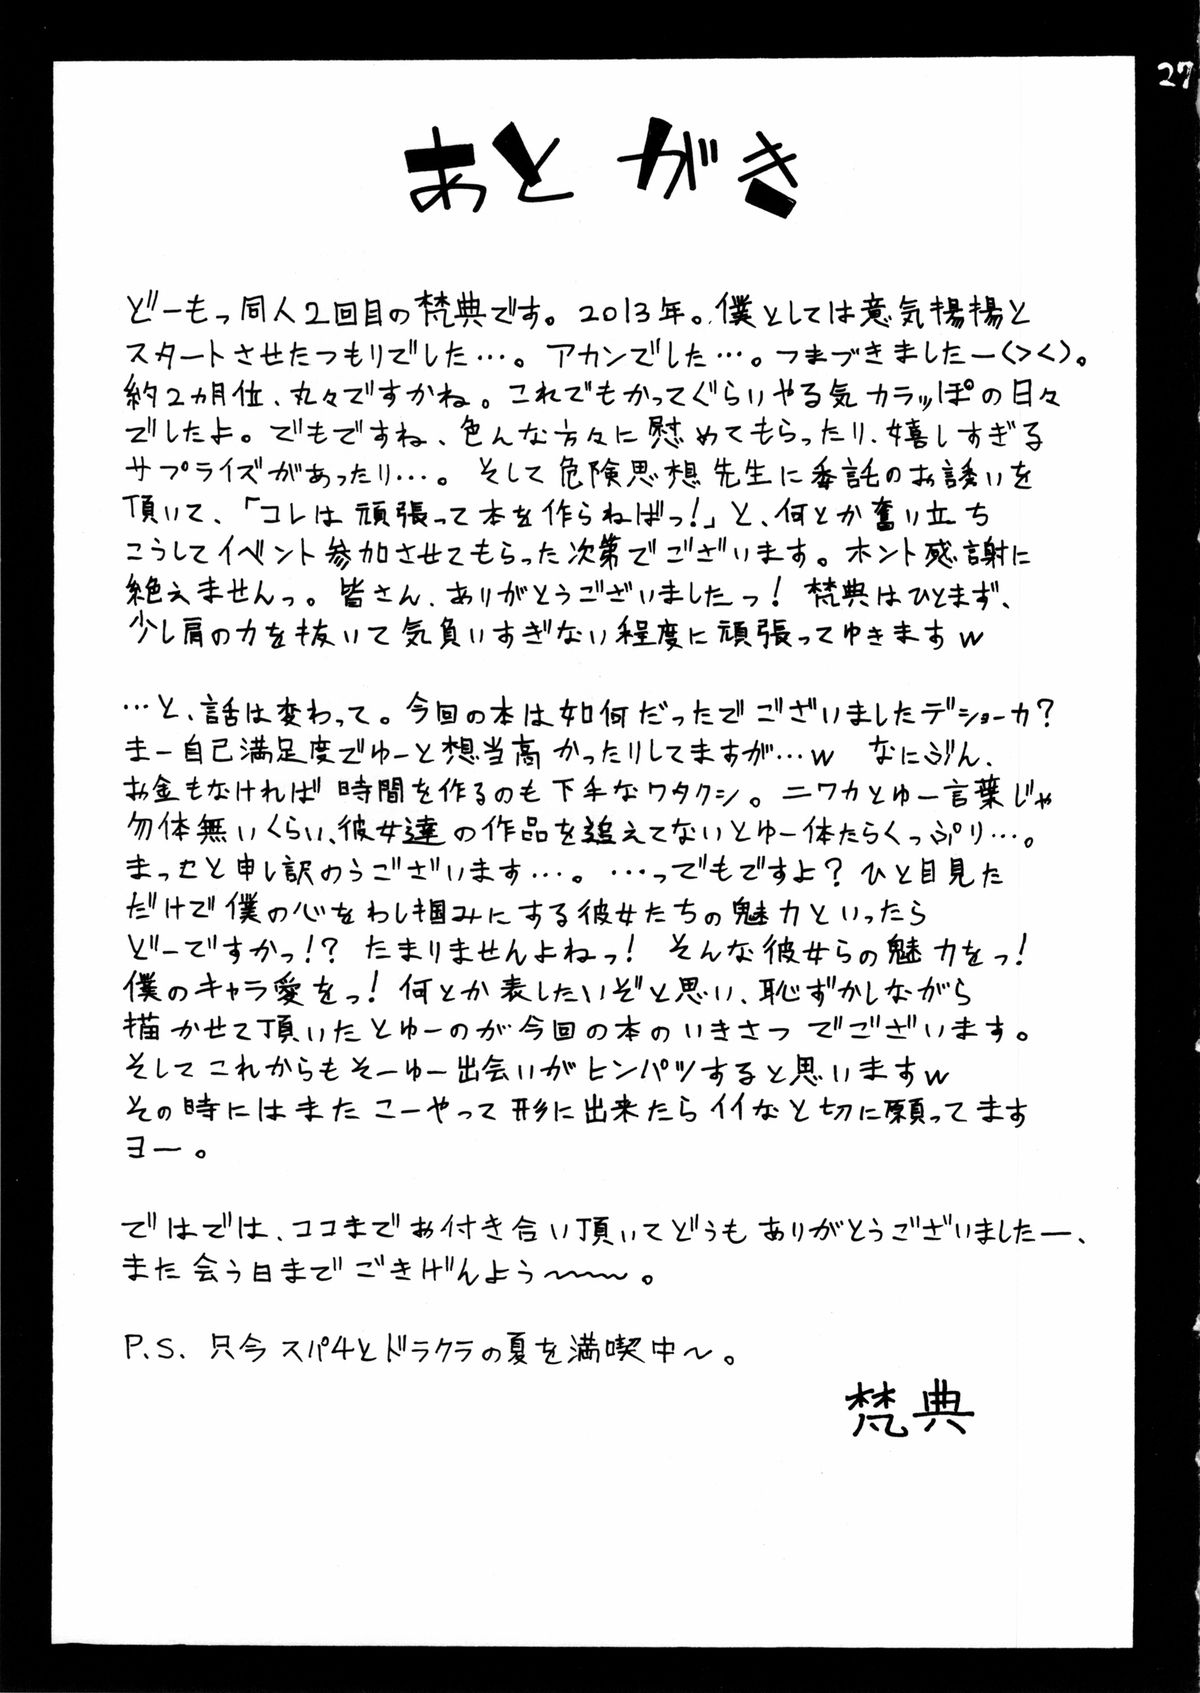 27
あとがき
どーもっ同人2回目の梵典です。2013年。僕としては意気揚揚と
スタートさせたつもりでした…。アカンでした…。つまづきましたー(><)。
約2ヵ月位、丸々ですかね。これでもかってぐらいやる気カラッぽの日々
でしたよ。でもですね、色んな方々に慰めてもらったり、嬉しすぎる
サプライズがあったり…。そして危険思想先生に委託のお誘いを
頂いて、「コレは頑張って本を作らねばっ!」と、何とか奮い立ち
こうしてイベント参加させてもらった次第でございます。ホント感謝に
絶えませんっ。皆さん、ありがとうございましたっ! 梵典はひとまず、
少し肩の力を抜いて気負いすぎない程度に頑張ってゆきますw
…と、話は変わって。今回の本は如何だったでございましたデショーカ?
まー自己満足度でゆーと想当高かったりしてますが…w なにぶん、
お金もなければ時間を作るのも下手なワタクシ。ニワカとゆー言葉じゃ
勿体無いくらい、彼女達の作品を追えてないとゆー体たらくっぷり…。
まったと申し訳のうございます…。…ってでもですよ?ひと目見た
だけで僕の心をわし掴みにする彼女たちの魅力といったら
どーですかっ!? たまりませんよねっ! そんな彼女らの魅力をっ!
僕のキャラ愛をっ!何とか表したいぞと思い、恥ずかしながら
描かせて頂いたとゆーのが今回の本のいきさつでございます。
そしてこれからもそーゆー出会いがヒンパツすると思いますw
その時にはまたこーやって形に出来たらイイなと切に願ってます
ヨー。
ではでは、ココまでお付き合い頂いてどうもありがとうございましたー、
また会う日までごきげんよう〜〜〜。
P.S. 只今スパ4とドラクラの夏を満喫中〜。
梵典